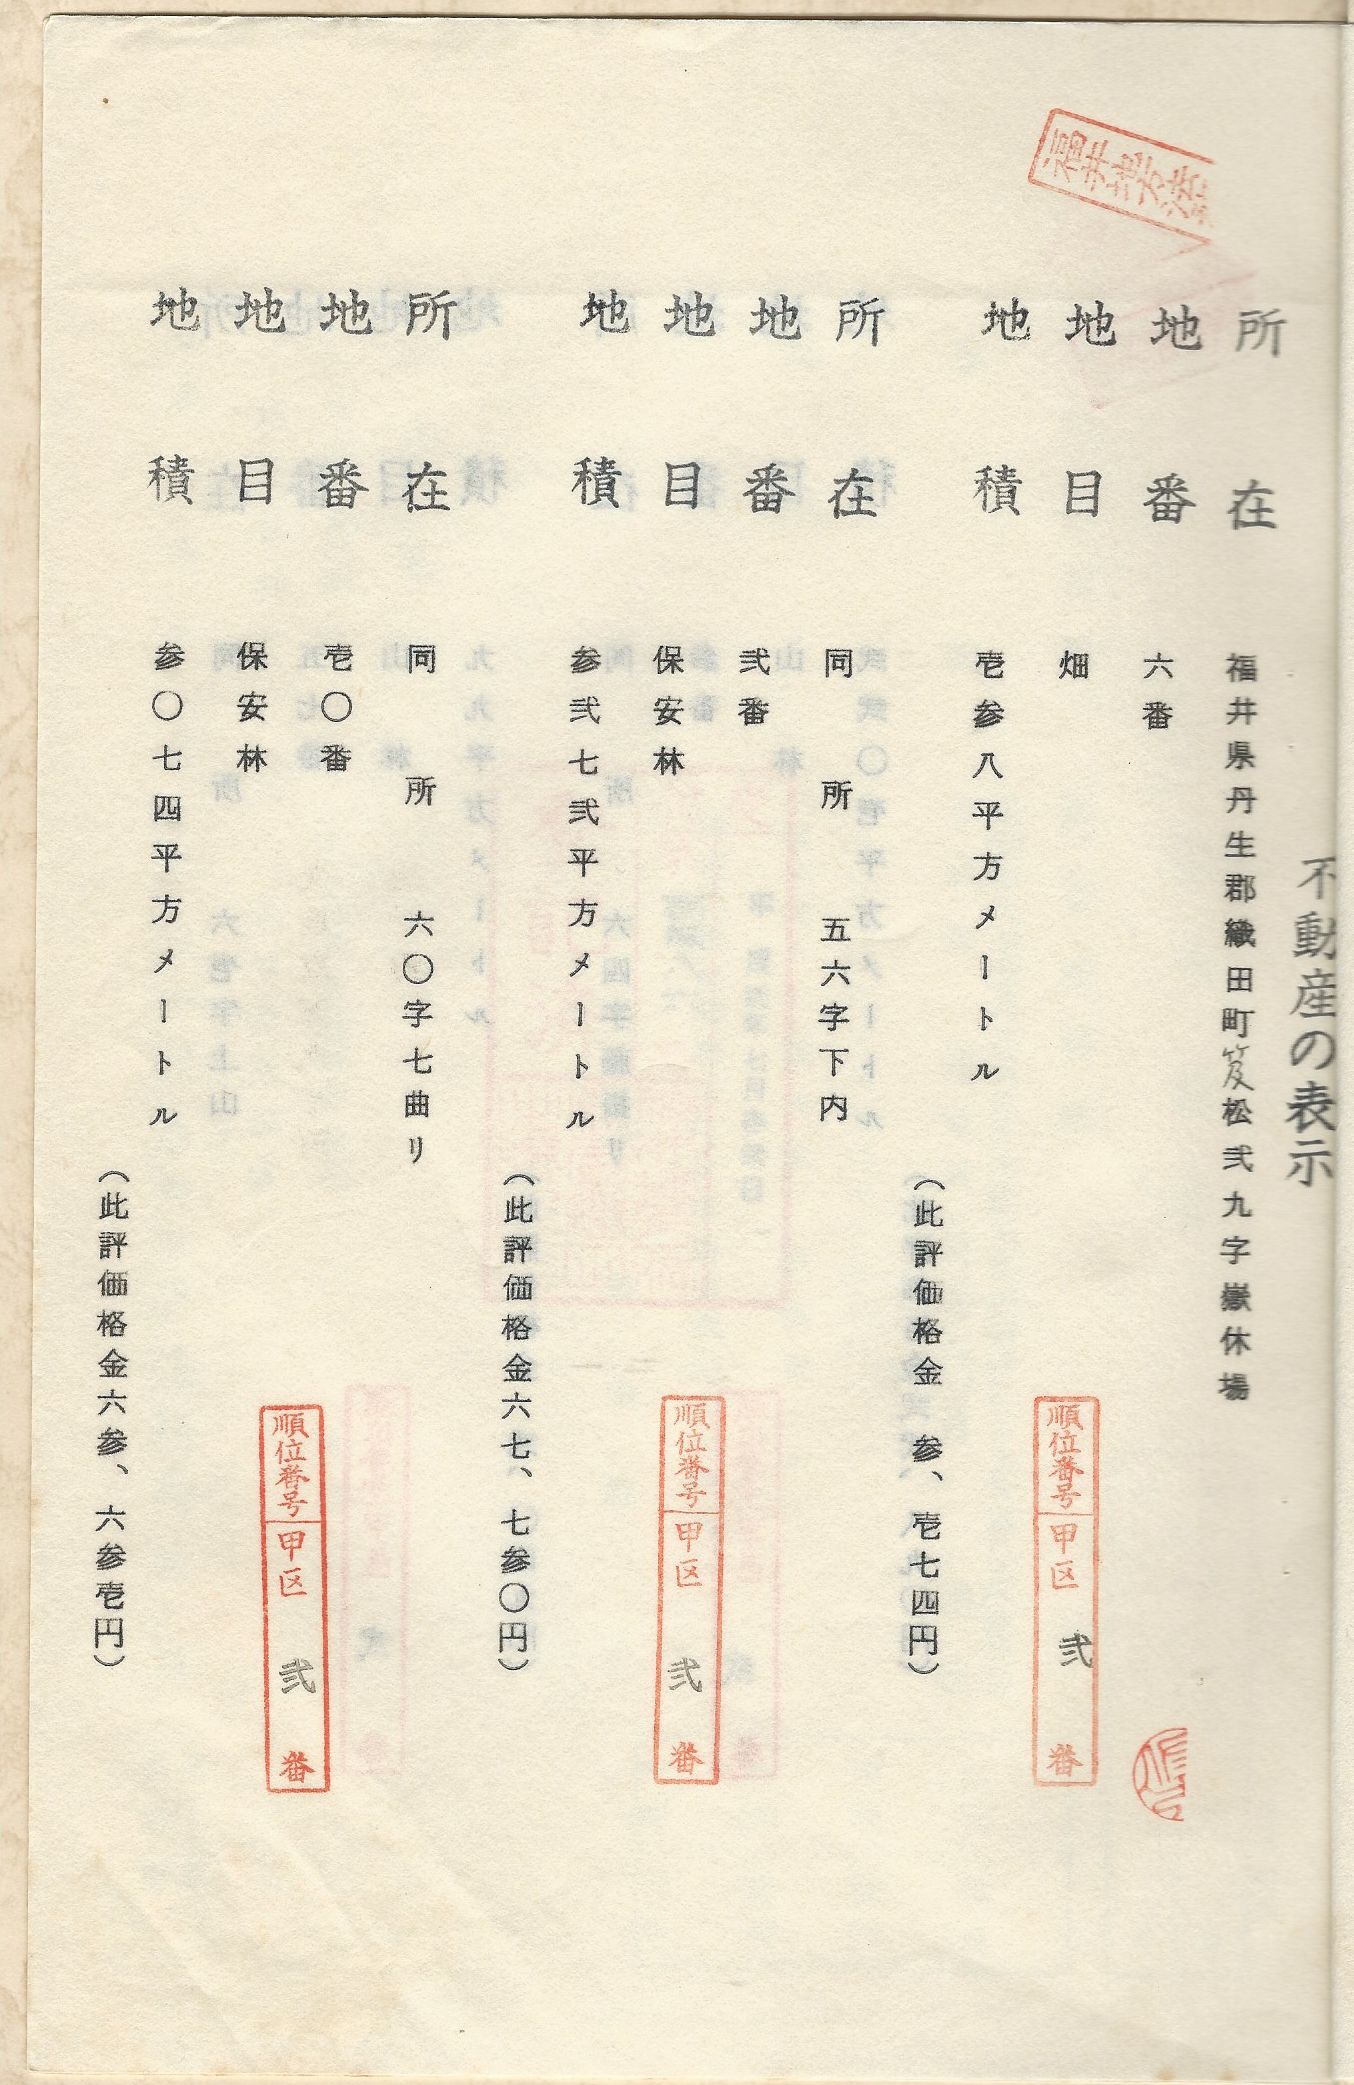 不動産の表示
所在 福井県丹生郡織田町笈松弐九字嶽休場
地番 六番
地目 畑
地積 壱参八平方メートル
(此評価格金 参、壱七四円)
所在 同所 五六字下内
地番 弐番
地目 保安林
地積 参弐七弐平方メートル
(此評価格金六七、七参〇円)
所在 同所 六〇字七曲リ
地番 壱〇番
地目 保安林
地積 参〇七四平方メートル
(此評価格金六参、六参壱円)
福井地方法
順位番号 甲区 弐 番
順位番号 甲区 弐 番
順位番号 甲区 弐 番